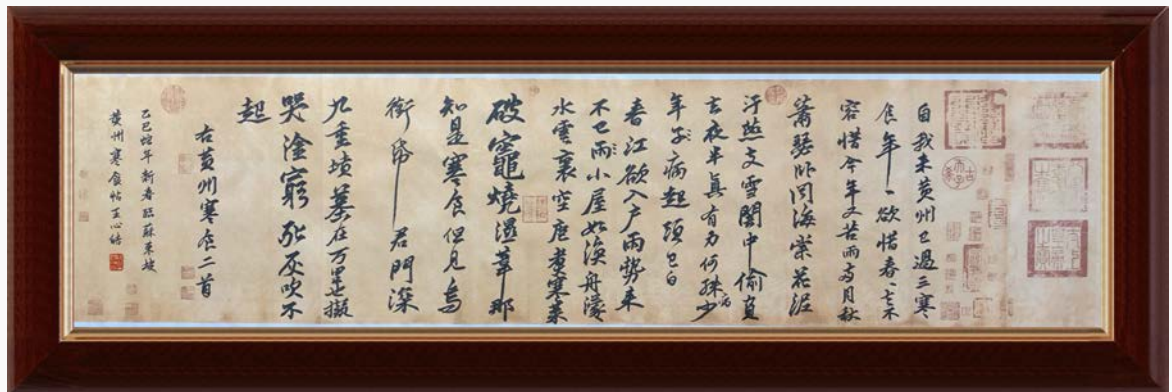 自我来黄州已過三寒
食年〻欲惜春〻去不
容惜今年又苦雨两月秋
蕭瑟卧聞海棠花泥
汙燕支雪闇中偷負
去夜半真有力何殊病少
年子病起頭已白
春江欲入户雨勢来
不已雨小屋如漁舟濛
水雲裏空庖煮寒菜
破竈燒濕葦那
知是寒食但見烏
銜帋君門深
九重墳墓在万里也擬
哭塗窮死灰吹不
起
右黄州寒食二首
乙巳蛇年新春臨蘇東坡
黄州寒食帖王心